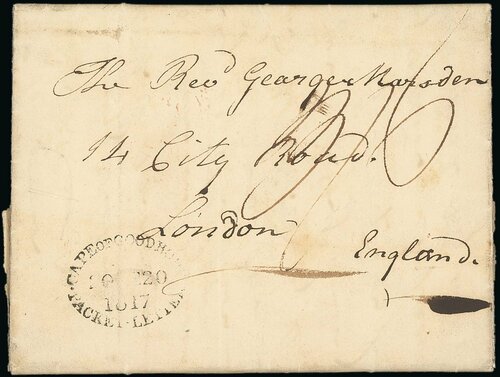 The Revd George Marsden
14 City Road.
London
England.
CAPE OF GOOD
20
1817
PACKET-LETTER